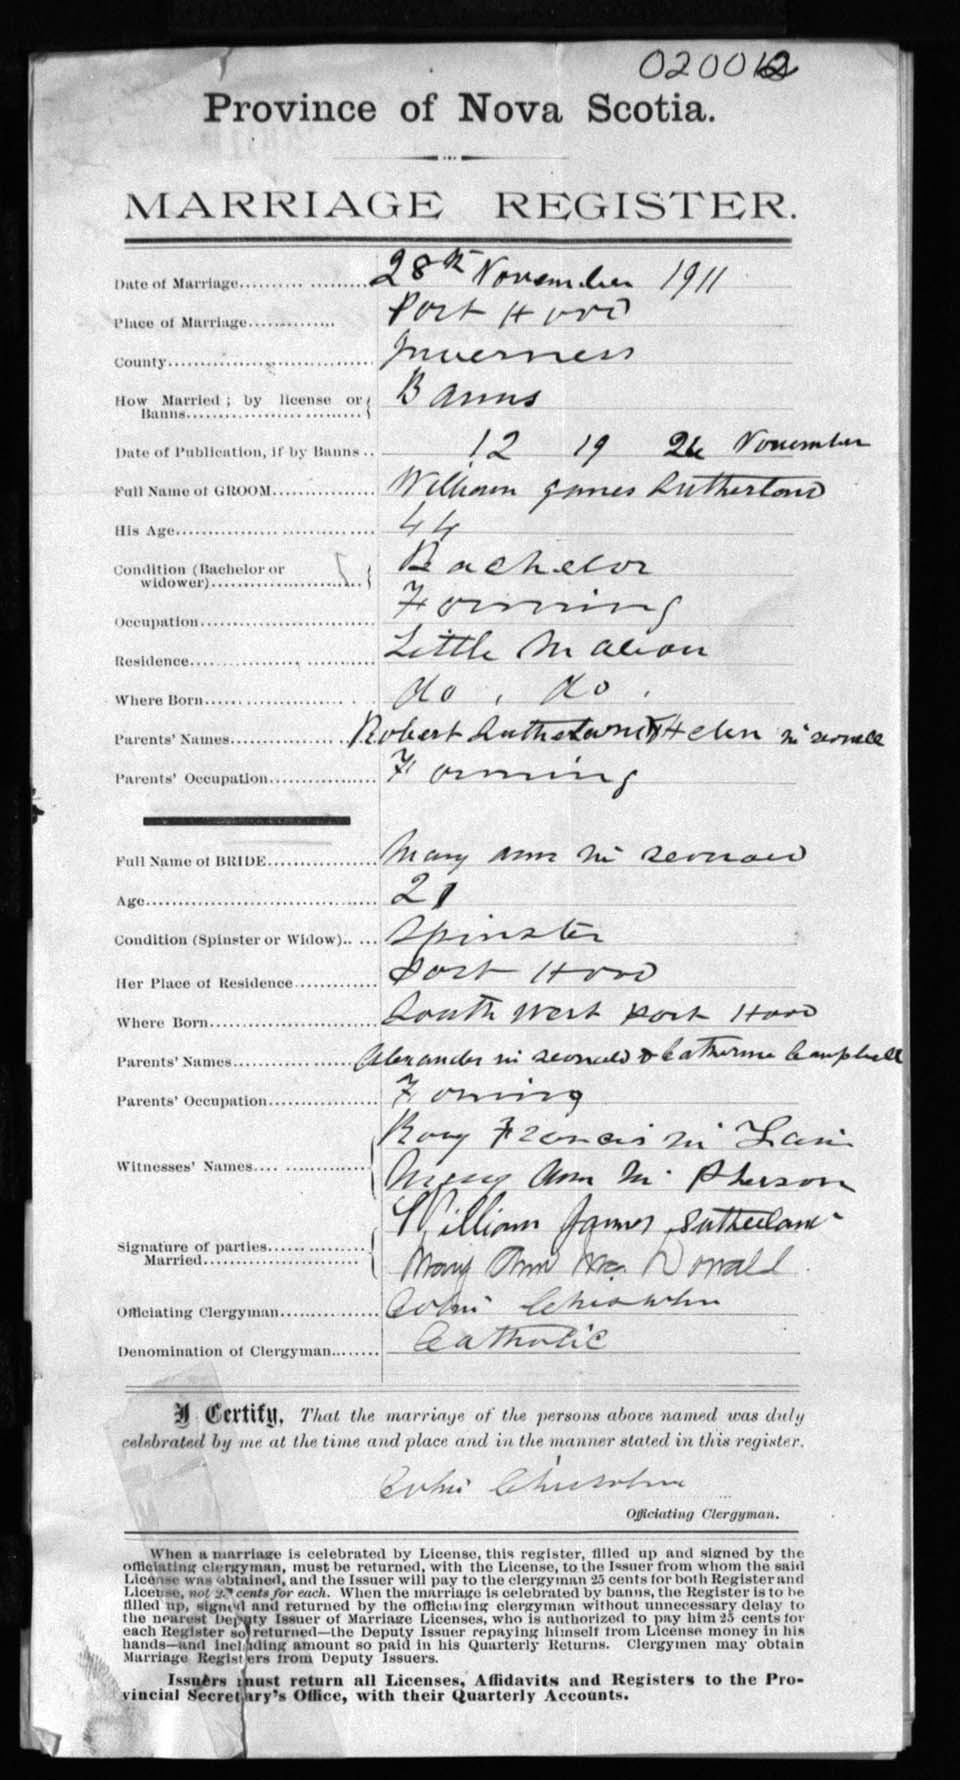 020012
Province of Nova Scotia.
MARRIAGE REGISTER.
Date of Marriage.......... 28th November 1911
Place of Marriage.............. Port Hood
County................................. Inverness
How Married ; by license or
Banns................................. Banns
Date of Publication, if by Banns .. 12 19 26 November
Full Name of GROOM................ William James Sutherland
His Age................................. 44
Condition (Bachelor or
widower)............................ Bachelor
Occupation............................ Farming
Residence............................ Little Mabou
Where Born.......................... do , do .
Parents' Names...................... Robert Sutherland & Helen Mc Donald
Parents' Occupation.................. Farming
Full Name of BRIDE................. Mary Ann Mc Donald
Age.................................... 21
Condition (Spinster or Widow)..... Spinster
Her Place of Residence............. Port Hood
Where Born.......................... South West Port Hood
Parents' Names...................... Alexander Mc Donald & Catherine Campbell
Parents' Occupation.................. Farming
Rory Francis Mc
Witnesses' Names....................
Mary Ann Mc Pherson
William James Sutherland
Signature of parties...................
Married............................
Mary Ann Mc Donald
Officiating Clergyman............... Colin Chisholm
Denomination of Clergyman........ Catholic
I Certify, That the marriage of the persons above named was duly
celebrated by me at the time and place and in the manner stated in this register.
Colin Chisholm
Officiating Clergyman.
When a marriage is celebrated by License, this register, filled up and signed by the
officiating clergyman, must be returned, with the License, to the Issuer from whom the said
License was obtained, and the Issuer will pay to the clergyman 25 cents for both Register and
License, not 25 cents for each. When the marriage is celebrated by banns, the Register is to be
filled up, signed and returned by the officiating clergyman without unnecessary delay to
the nearest Deputy Issuer of Marriage Licenses, who is authorized to pay him 25 cents for
each Register so returned—the Deputy Issuer repaying himself from License money in his
hands—and including amount so paid in his Quarterly Returns. Clergymen may obtain
Marriage Registers from Deputy Issuers.
Issuers must return all Licenses, Affidavits and Registers to the Pro-
vincial Secretary's Office, with their Quarterly Accounts.